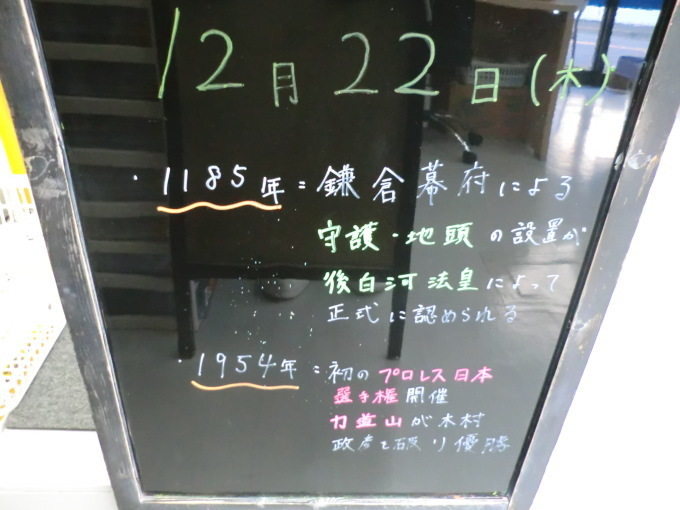 12月22日(木)
・1185年=鎌倉幕府による
守護・地頭の設置が
後白河法皇によって
正式に認められる
・1954年=初のプロレス日本
選手権開催
力道山が木村
政彦を破り優勝